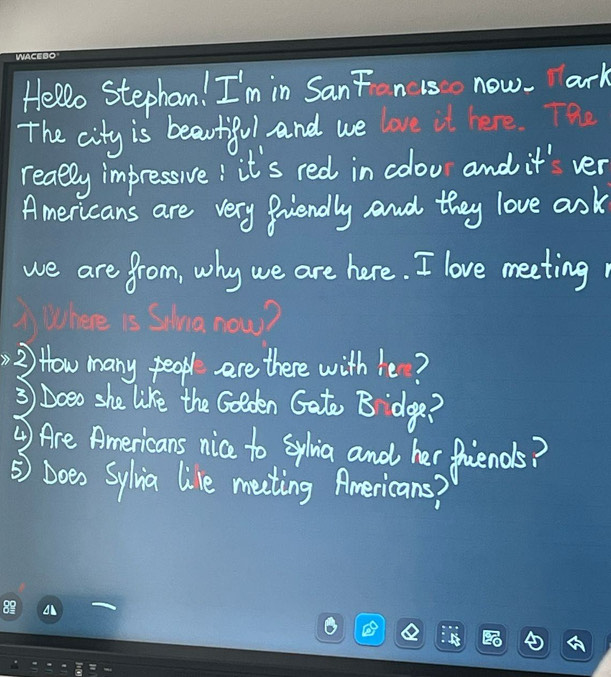 WACEBO
Hello Stephan! I'm in San Francisco now. Mark
The city is beautiful and we love it here. The
really impressive: it's red in colour and it's ver
Americans are very friendly and they love ask
we are from, why we are here. I love meeting
1) Where is Silvia now?
» 2) How many people are there with here?
3) Does she like the Golden Gate Bridge?
4) Are Americans nice to Sylvia and her friends?
5) Does Sylvia like meeting Americans?